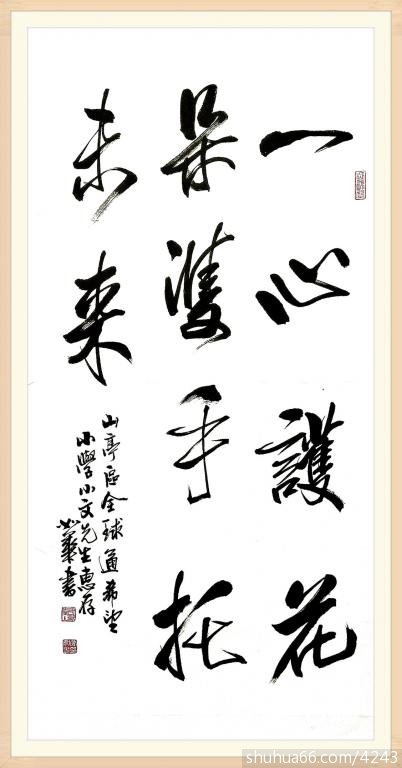 一心護花
朵雙手托
未来
山亭区全球通希望
小學小文先生惠存
華書
shuhua66.com/4243